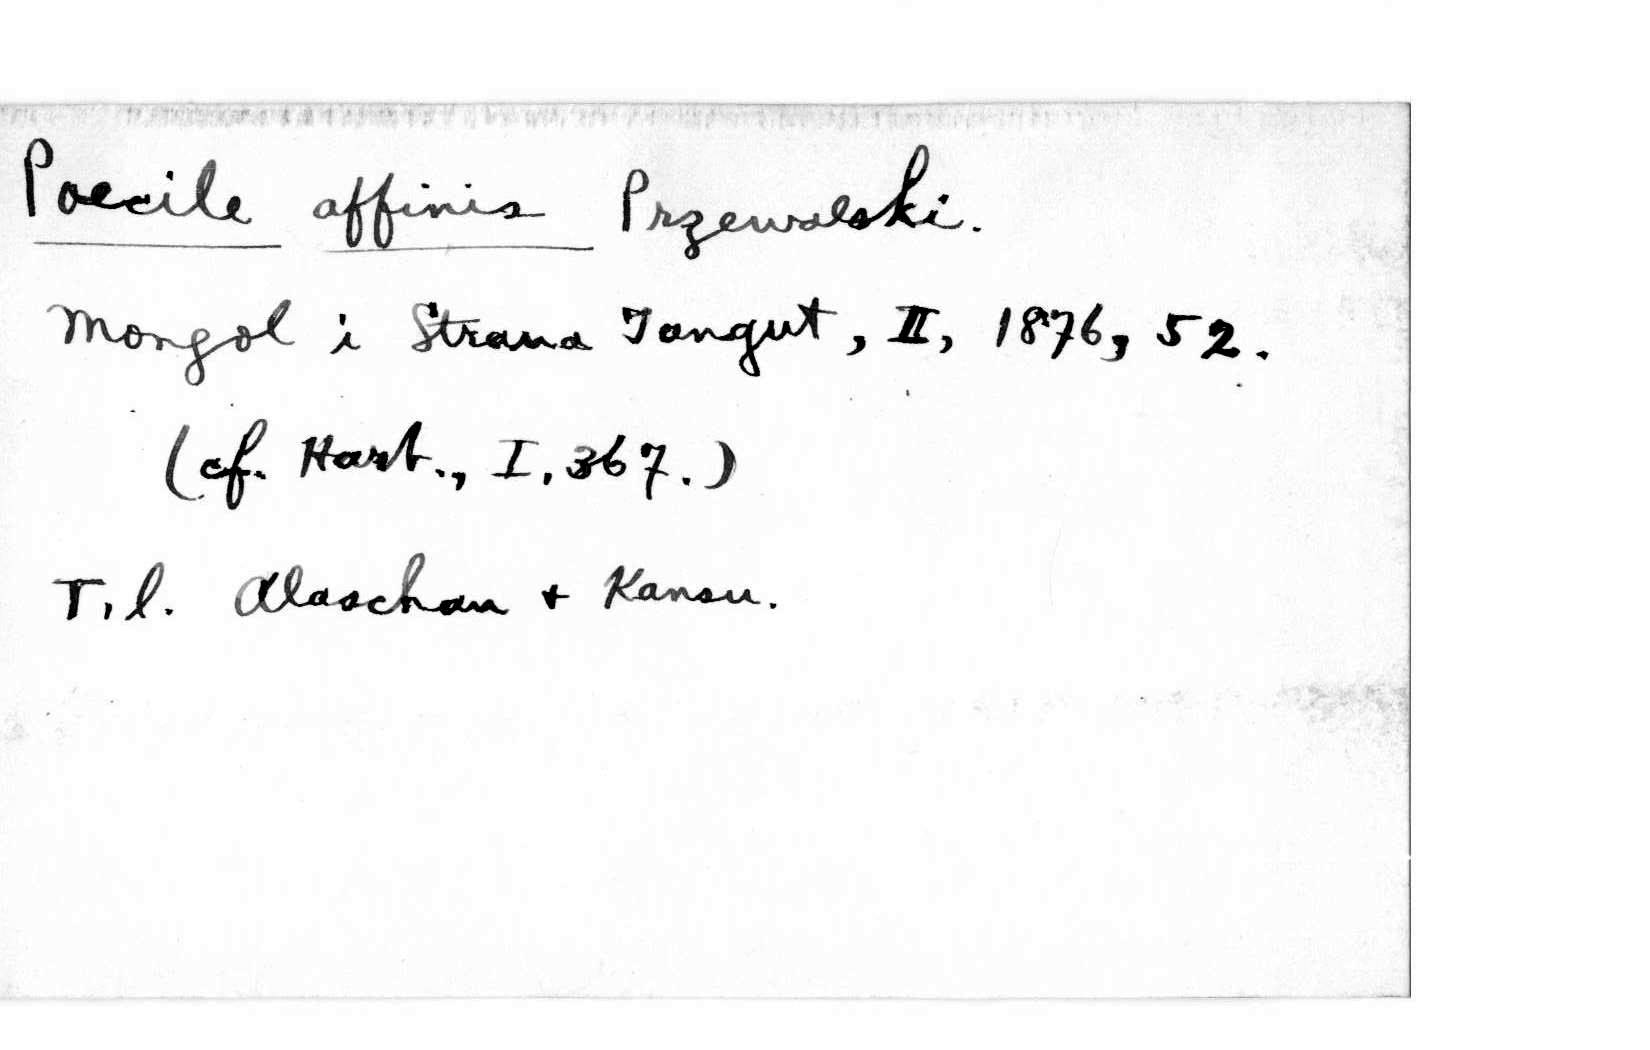 Poecile affinis Przewalski.
Mongol i Strana Tangut, II, 1876, 52.
(cf. Hart., I, 367.)
T.l. Alaschan + Kansu.